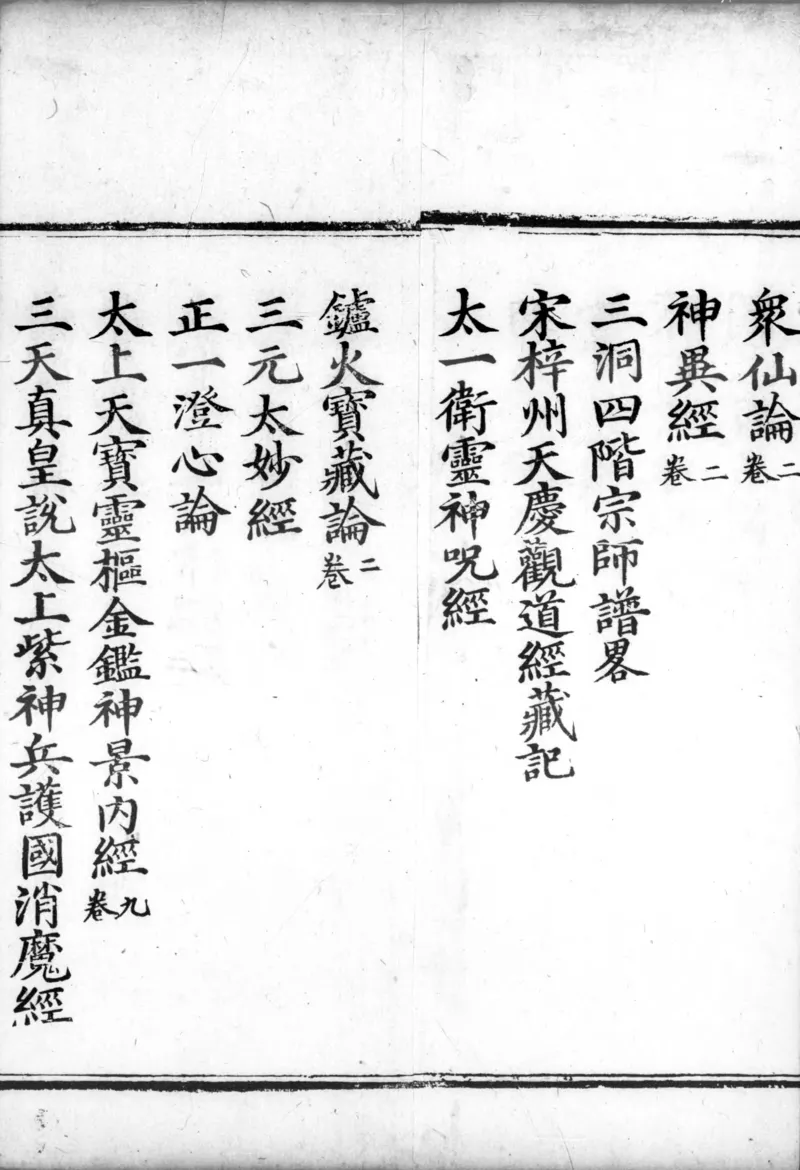 衆仙論二卷
神異經二卷
三洞四階宗師譜畧
宋梓州天慶觀道經藏記
太一衛靈神呪經
鑪火寶藏論二卷
三元太妙經
正一澄心論
太上天寶靈樞金鑑神景内經九卷
三天真皇說太上紫神兵護國消魔經